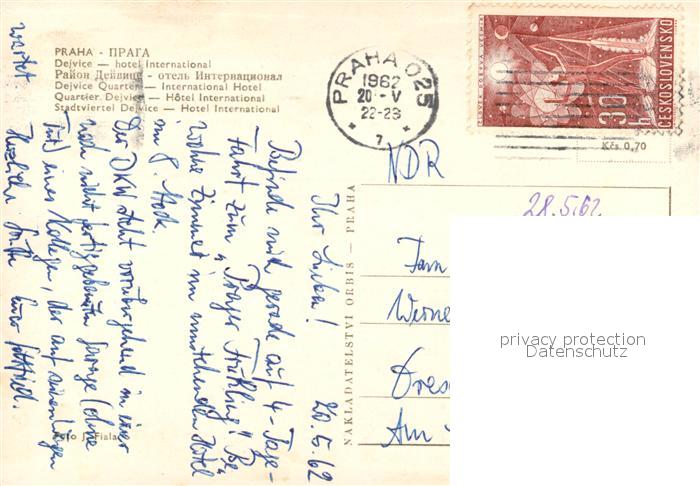 PRAHA - ПРАГА
Dejvice — hotel International
Район Дейвице - отель Интернационал
Dejvice Quarter — International Hotel
Quartier Dejvice — Hôtel International
Stadtviertel Dejvice — Hotel International
PRAHA 025
1962
20 V
22-23
7
30 h
ČESKOSLOVENSKO
Kčs 0,70
NDR
28.5.62
Fam
Werne
Dres
Am
NAKLADATELSTVÍ ORBIS — PRAHA
privacy protection
Datenschutz
20.5.62
Ihr Lieben!
Befinde mich gerade auf 4-Tage-
fahrt zum "Prager Frühling". Be
wohne Zimmer im umstehenden Hotel
im 8. Stock
Der DKW steht vorübergehend in einer
noch nicht fertiggebauten Garage (ohne
Tür) eines Kollegen, der auf seinen Wagen
wartet.
Herzliche Grüße Euer
Foto J. Fiala